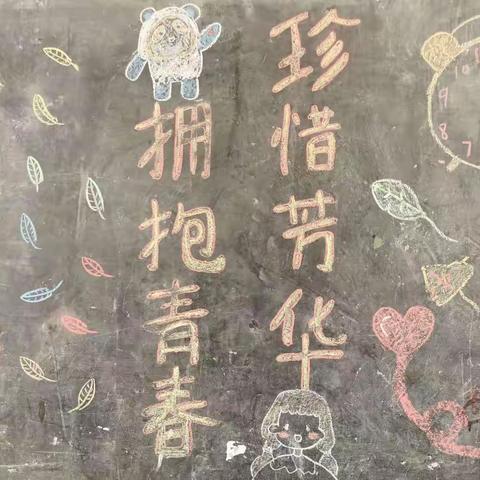 珍惜芳华
拥抱青春
10
9
8
7